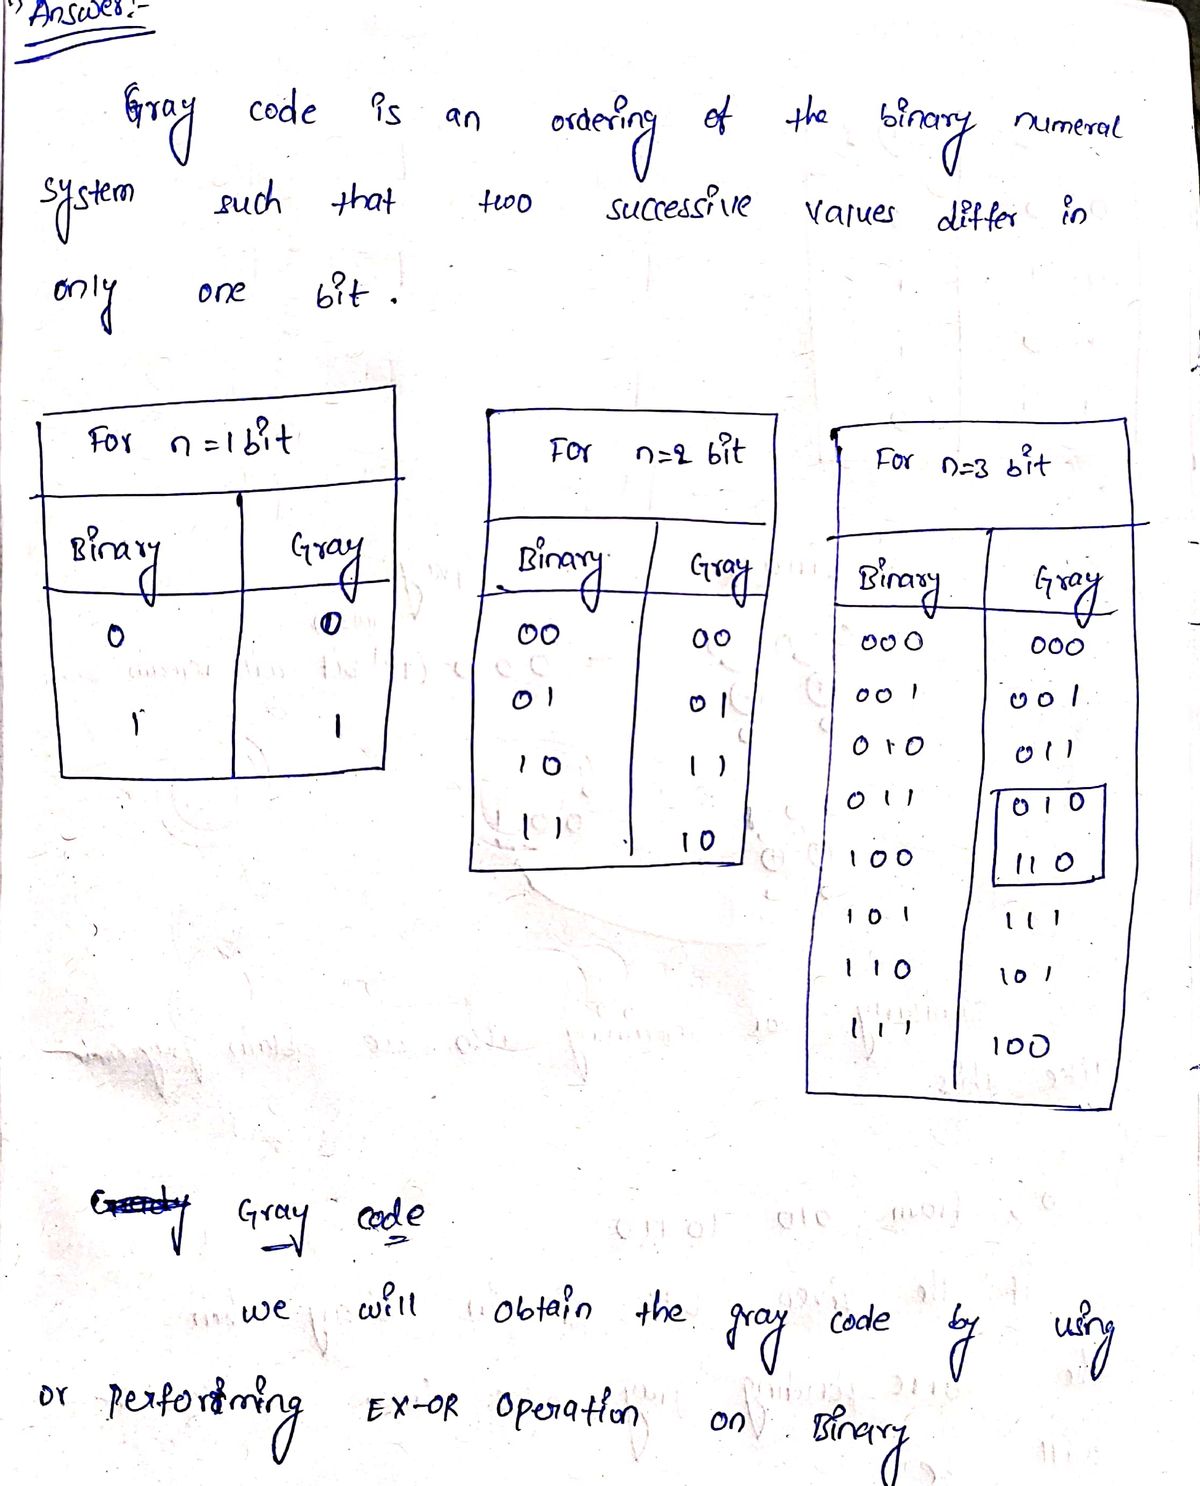 1) Answer:-
Gray code is an ordering of the binary numeral
system such that two successive values differ in
only one bit.
For n=1 bit
Binary Gray
0 0
1 1
For n=2 bit
Binary Gray
00 00
01 01
10 11
11 10
For n=3 bit
Binary Gray
000 000
001 001
010 011
011 010
100 110
101 111
110 101
111 100
Gray code
we will obtain the gray code by using
or performing EX-OR operation on Binary